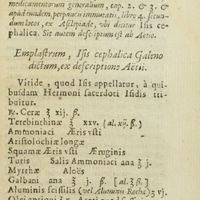 medicamentorum generalium, cap. 2. & 3. &
apud eundem, perpaucis immutatis, libro 4. secun-
dum locos, ex Asclepiade, ubi dicitur Isis ce-
phalica. Sic autem descriptum est ab Aetio.
Emplastrum, Isis cephalica Galeno
dictum, ex descriptione Aëtii.
Viride, quod Isis appellatur, à qui-
busdam Hermoni sacerdoti Isidis tri-
buitur.
℞. Ceræ ℥ xij. ß.
Terebinthinæ ℥ xxv. (al. xij. ß.)
Ammoniaci Æris usti
Aristolochiæ longæ
Squamæ Æris usti Æruginis
Turis Salis Ammoniaci ana ℥ j.
Myrrhæ Aloës
Galbani ana ʒ j. ß. [al. ℥ ß.]
Aluminis scissilis (vel Aluminis Rochæ) ʒ vj.